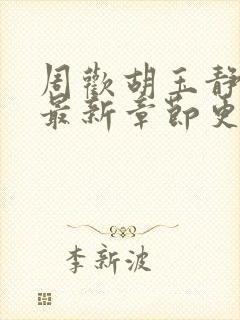 周歡胡玉靜
最新章節更
李新波